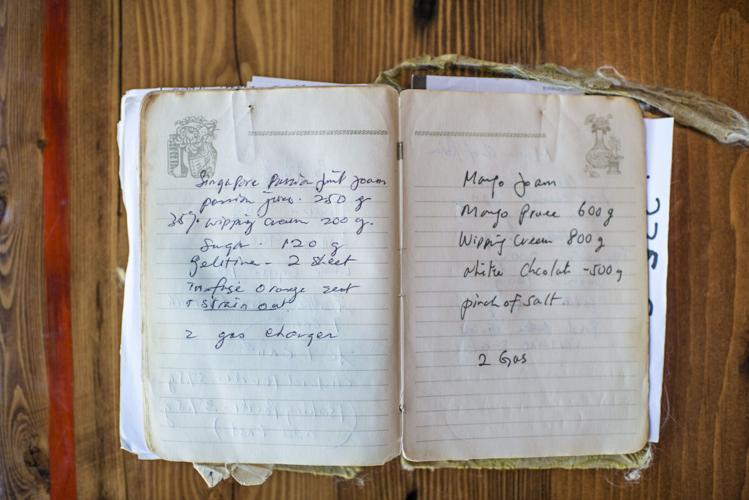 Singapore Passion fruit foam
passion juice. 250 g
35% wipping cream 200 g.
Sugar. 120 g
Gelitine - 2 sheet
infuse orange zest
& strain out
2 gas charger
Mango foam
Mango Puree 600 g
Wipping cream 800 g
white Chcolat - 500 g
pinch of salt
2 Gas